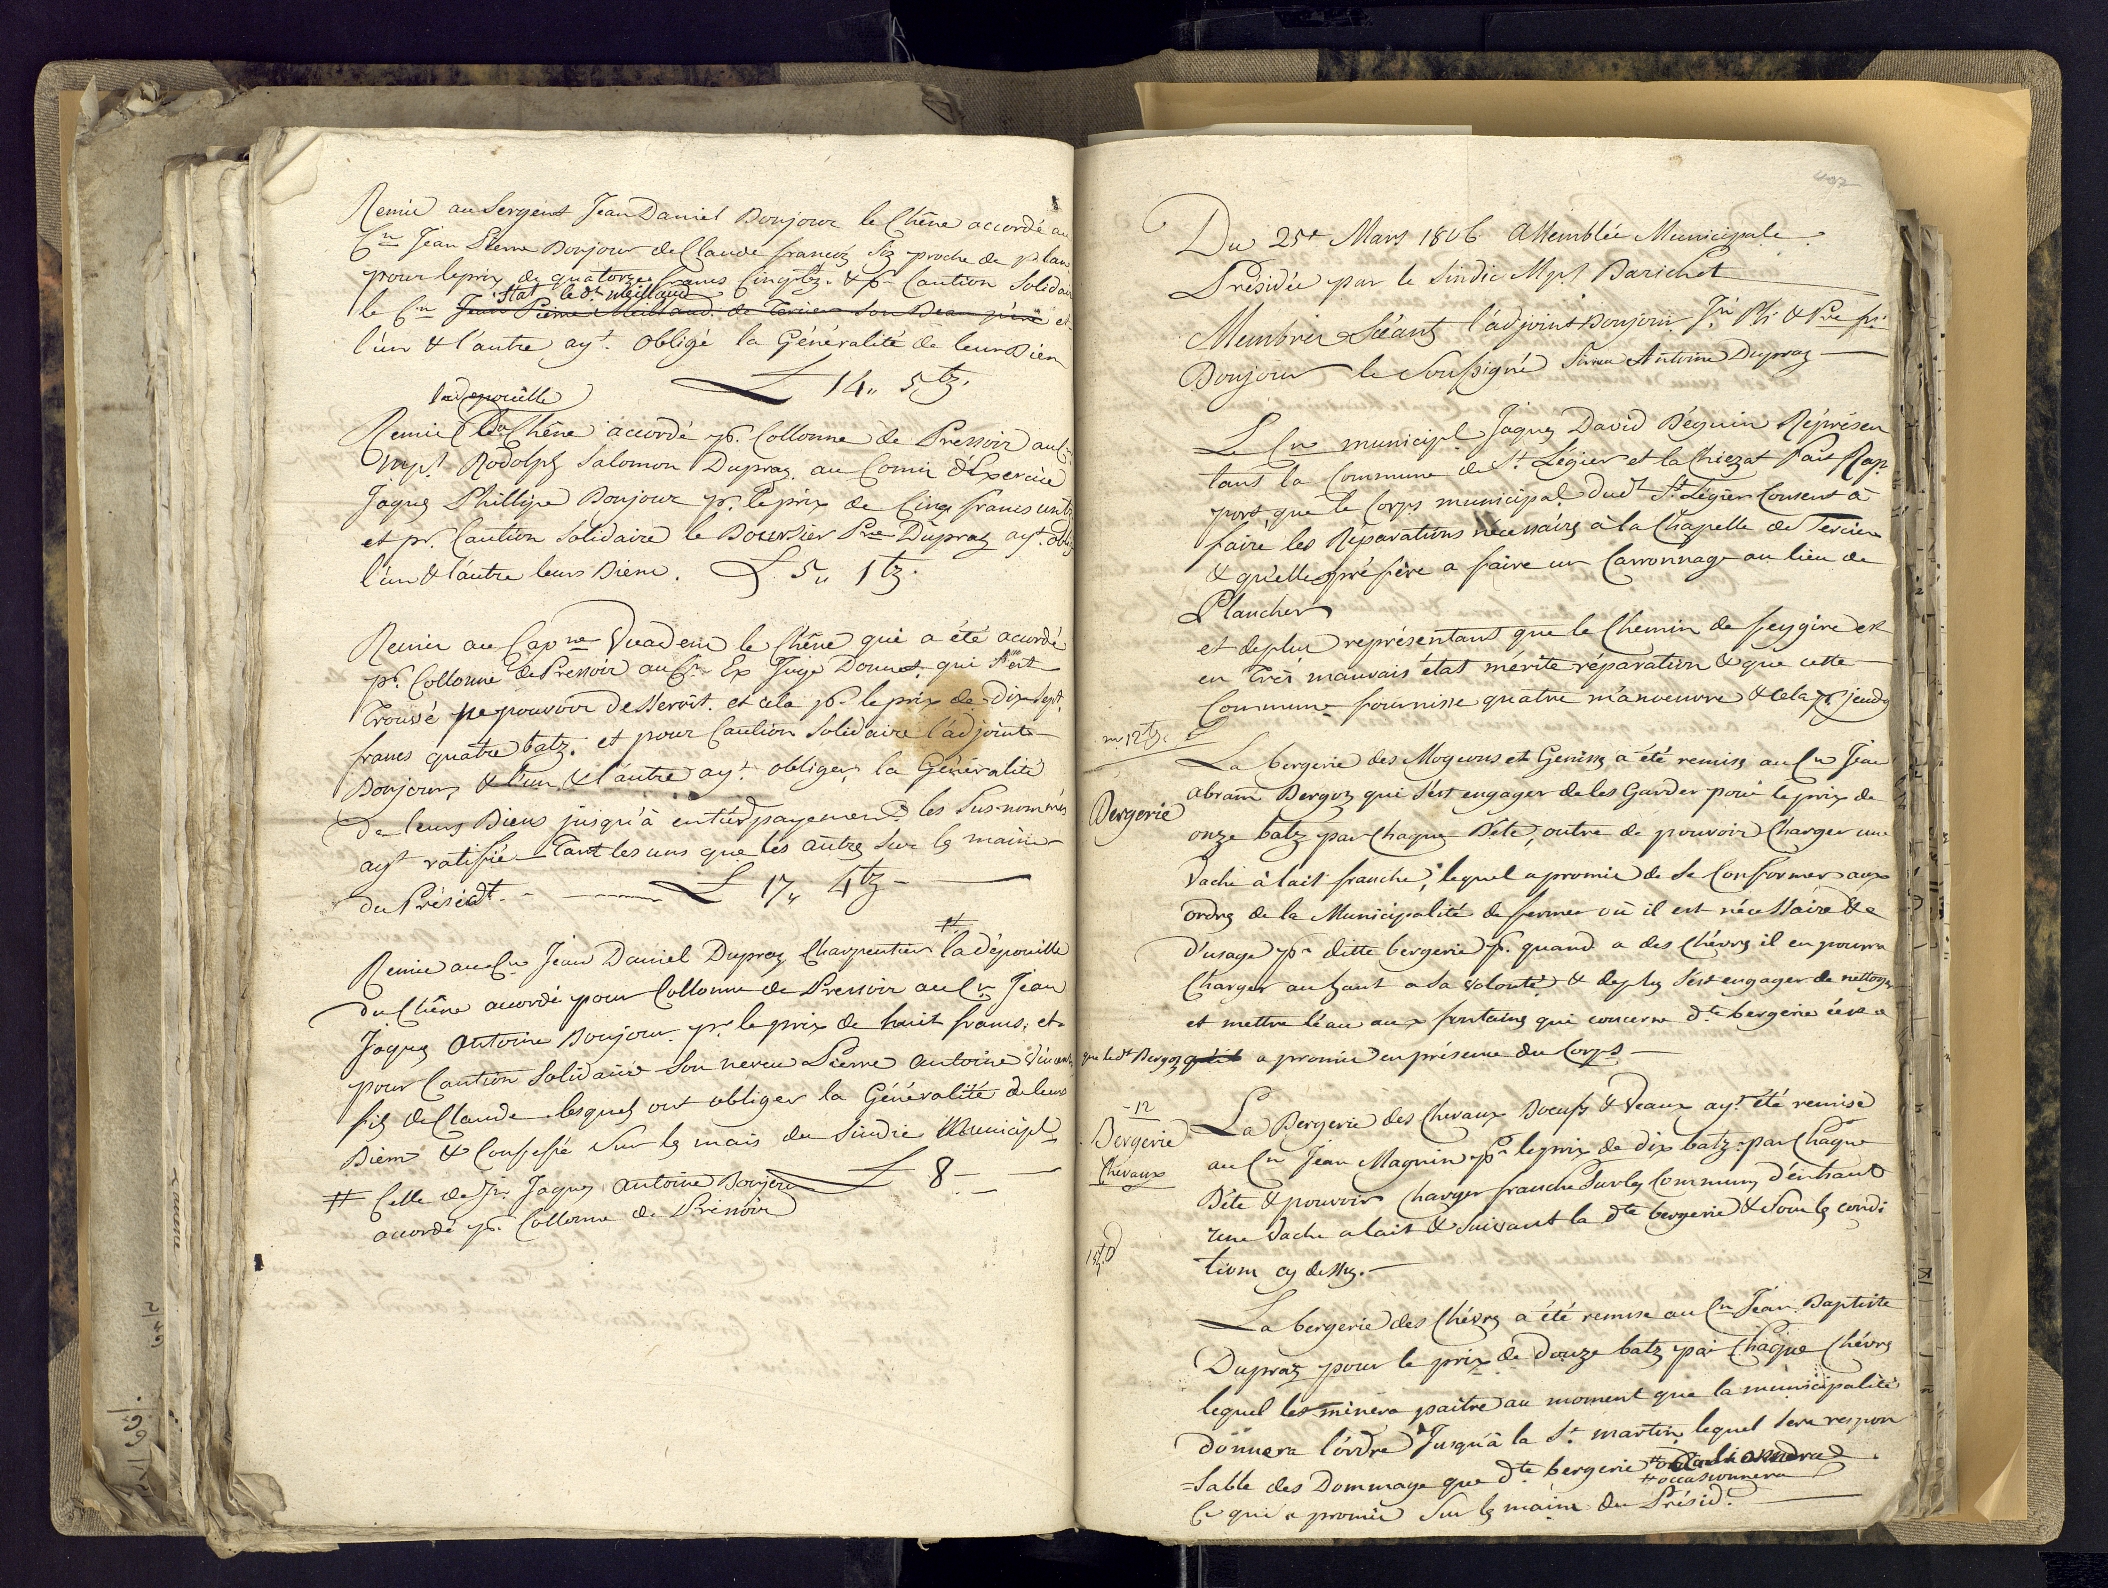 Remis au Sergent Jean Daniel Bonjour le Chêne accordé au
Cn Jean Pierre Bonjour de Claude francoz Siz proche de plan
pour le prix de quatorze francs Cinq btz. & pr Caution Solidair
Stat le dt Meilland
le Cn Jean Pierre Meilland de Tercier son Beau père et
l'un & l'autre ayt. Obligé la Généralité de leurs Bien
L 14,, 5 btz.
la depouille
Remis le Chêne accordé pr. Collonne de Pressoir au Cn
Mpl Rodolph Salomon Dupraz au Comis d'Exercice
Jaques Phillipe Bonjour pr. le prix de Cinq francs un btz
et pr. Caution Solidaire le Boursier Pre Dupraz ayt. oblig
l'un & l'autre leurs Biens. L 5,, 1 btz.
Remis au Capne Vuadens le Chêne qui a été acordé
pr. Collonne de Pressoir au Cn Ex Juge Bonnet qui s'est
trouvé ne pouvoir desservir. et cela pr. le prix de Dix sept
francs quatre batz. et pour Caution Solidaire l'adjoint
Bonjour, & l'un & l'autre ayt. obliger la Généralité
de leurs Biens jusqu'à entier payement les Sus-nommés
ayt ratifié Tant les uns que les autres Sur les mains
du Présidt. - L 17,, 4 btz -
#
Remis au Cn Jean Daniel Dupraz Charpentier la dépouille
du Chêne acordé pour Collonne de Pressoir au Cn Jean
Jaques Antoine Bonjour pr. le prix de huit francs, et
pour Caution Solidaire Son neveu Pierre Antoine Vincent
fils de Claude lesquels ont obliger la Généralité de leurs
Biens & Confessé Sur les mais du Sindic Municipl
L 8 - -
# Celle de Jn. Jaques Antoine Bonjour
accordé pr. Collonne de Pressoir
Du 25e Mars 1806 Assemblée Municipale
Présidée par le Sindic Mpl Barichet
Membres Séants l'adjoint Bonjour Jn Ph & Pre fs
Bonjour le Soussigné Sieur Antoine Dupraz
Le Cn municipl Jaques David Béguin Réprésen
tant la Commune de St Légier et la Chiezat fait Rap
port que le Corps municipal dudt St Légier Consent à
faire les Réparations nécessaires à la Chapelle de Tercier
& qu'elle préfère a faire un Carronnage au lieu de
Plancher
et deplus représentant que le Chemin de feygire est
en Très mauvais état mérite réparation & que cette
Commune fournisse quatre manoeuvre & cela pr. jeudy
12 btz
Bergerie
La bergerie des Mogeons et Genisses a été remise au Cn Jean
Abram Bergoz qui s'est engager de les Garder pour le prix de
onze batz par Chaque Bête, outre de pouvoir Charger une
Vache à lait franche, lequel a promis de se Conformer aux
ordres de la Municipalité de fermer où il est nécessaire & c
d'usage pr ditte bergerie pr. quand a des Chévres il en pourra
Charger au haut a Sa volonté & deplus s'est engager de nettoyer
et mettre l'eau aux fontaines qui concerne dte bergerie
que le dt Bergoz qu'il a promis en présence du Corps -
- 12
Bergerie
Chevaux
La Bergerie des Chevaux Boeufs & Veaux ayt. été remise
au Cn Jean Magnin pr le prix de dix batz par Chaque
Bête & pouvoir Charger franche Sur les Communs d'enhaut
une Vache a lait & Suivant la dte bergerie & Sous les condi
tions cy dessus. -
La bergerie des Chévres a été remise au Cn Jean Baptiste
Dupraz pour le prix de Douze batz par Chaque Chévres
lequel les mènera paître au moment que la municipalité
donnera l'ordre Jusqu'à la St. martin, lequel Sera respon
=Sable des Dommage que dte bergerie
# occasionnera
Ce qui a promis Sur les mains du Présidt.